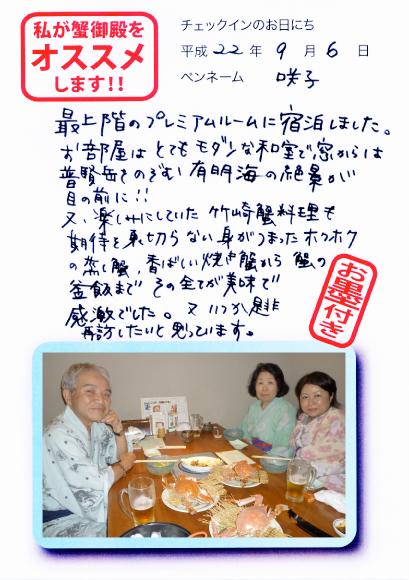 私が蟹御殿を
オススメ
します!!
チェックインのお日にち
平成 22 年 9 月 6 日
ペンネーム 咲子
最上階のプレミアムルームに宿泊しました。
お部屋はとてもモダンな和室で窓からは
普賢岳をのぞむ有明海の絶景が
目の前に!!
又、楽しみにしていた竹崎蟹料理も
期待を裏切らない身がつまったホクホク
の蒸し蟹、香ばしい焼き蟹から蟹の
釜飯までその全てが美味で
感激でした。又いつか是非
再訪したいと思っています。
お墨付き